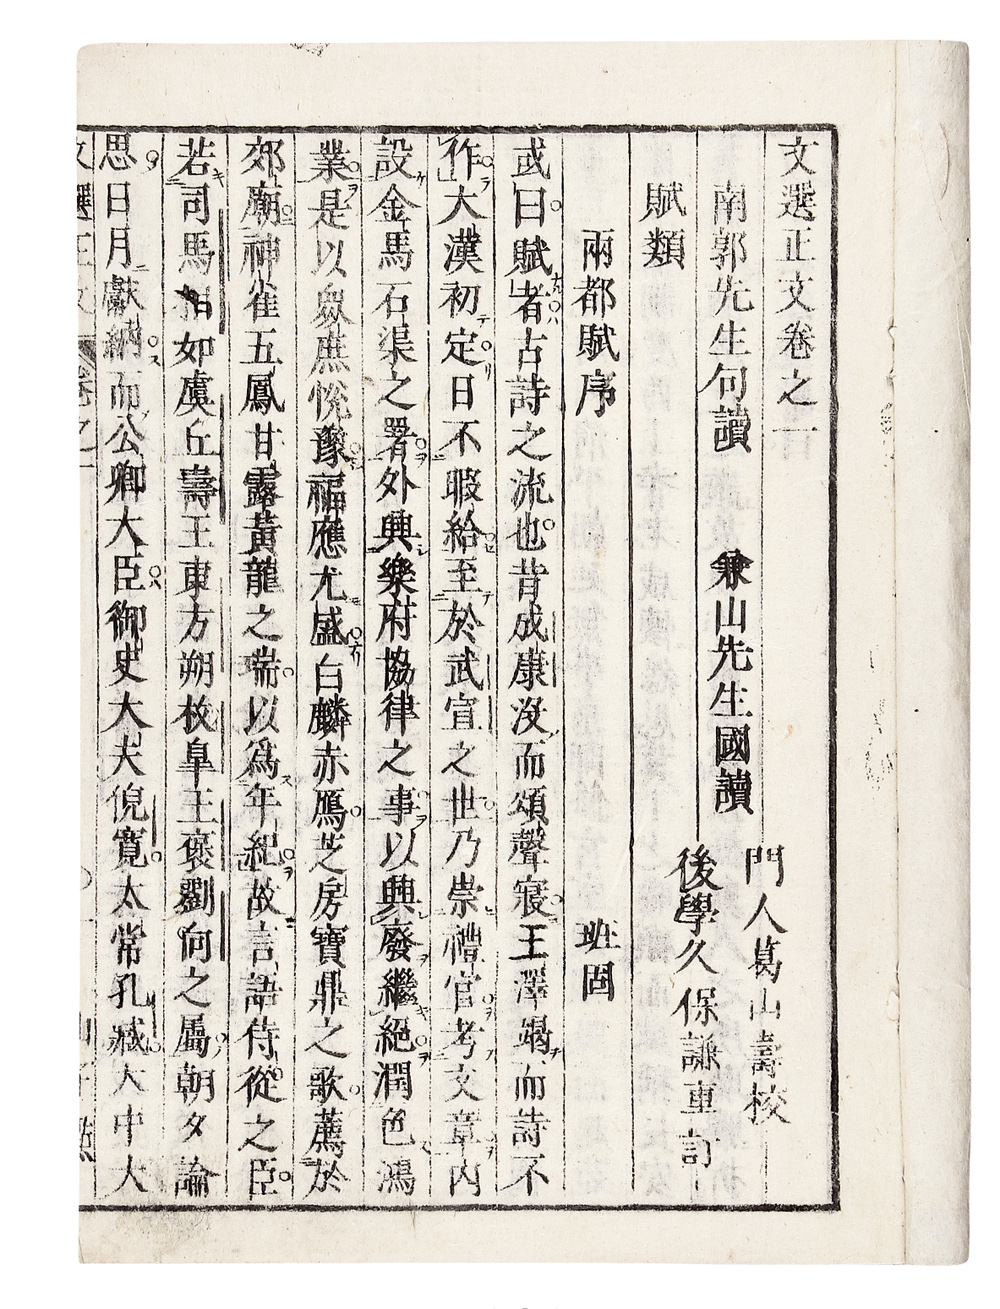 文選正文卷之一
門人葛山壽校
南郭先生句讀 兼山先生國讀
後學久保謙重訂
賦類
兩都賦序 班固
或曰賦者古詩之流也昔成康沒而頌聲寢王澤竭而詩不
作大漢初定日不暇給至於武宣之世乃崇禮官考文章內
設金馬石渠之署外興樂府協律之事以興廢繼絕潤色鴻
業是以眾庶悅豫福應尤盛白麟赤鴈芝房寶鼎之歌薦於
郊廟神雀五鳳甘露黃龍之瑞以爲年紀故言語侍從之臣
若司馬相如虞丘壽王東方朔枚皐王褒劉向之屬朝夕論
思日月獻納而公卿大臣御史大夫倪寬太常孔臧大中大
文選正文 卷之一